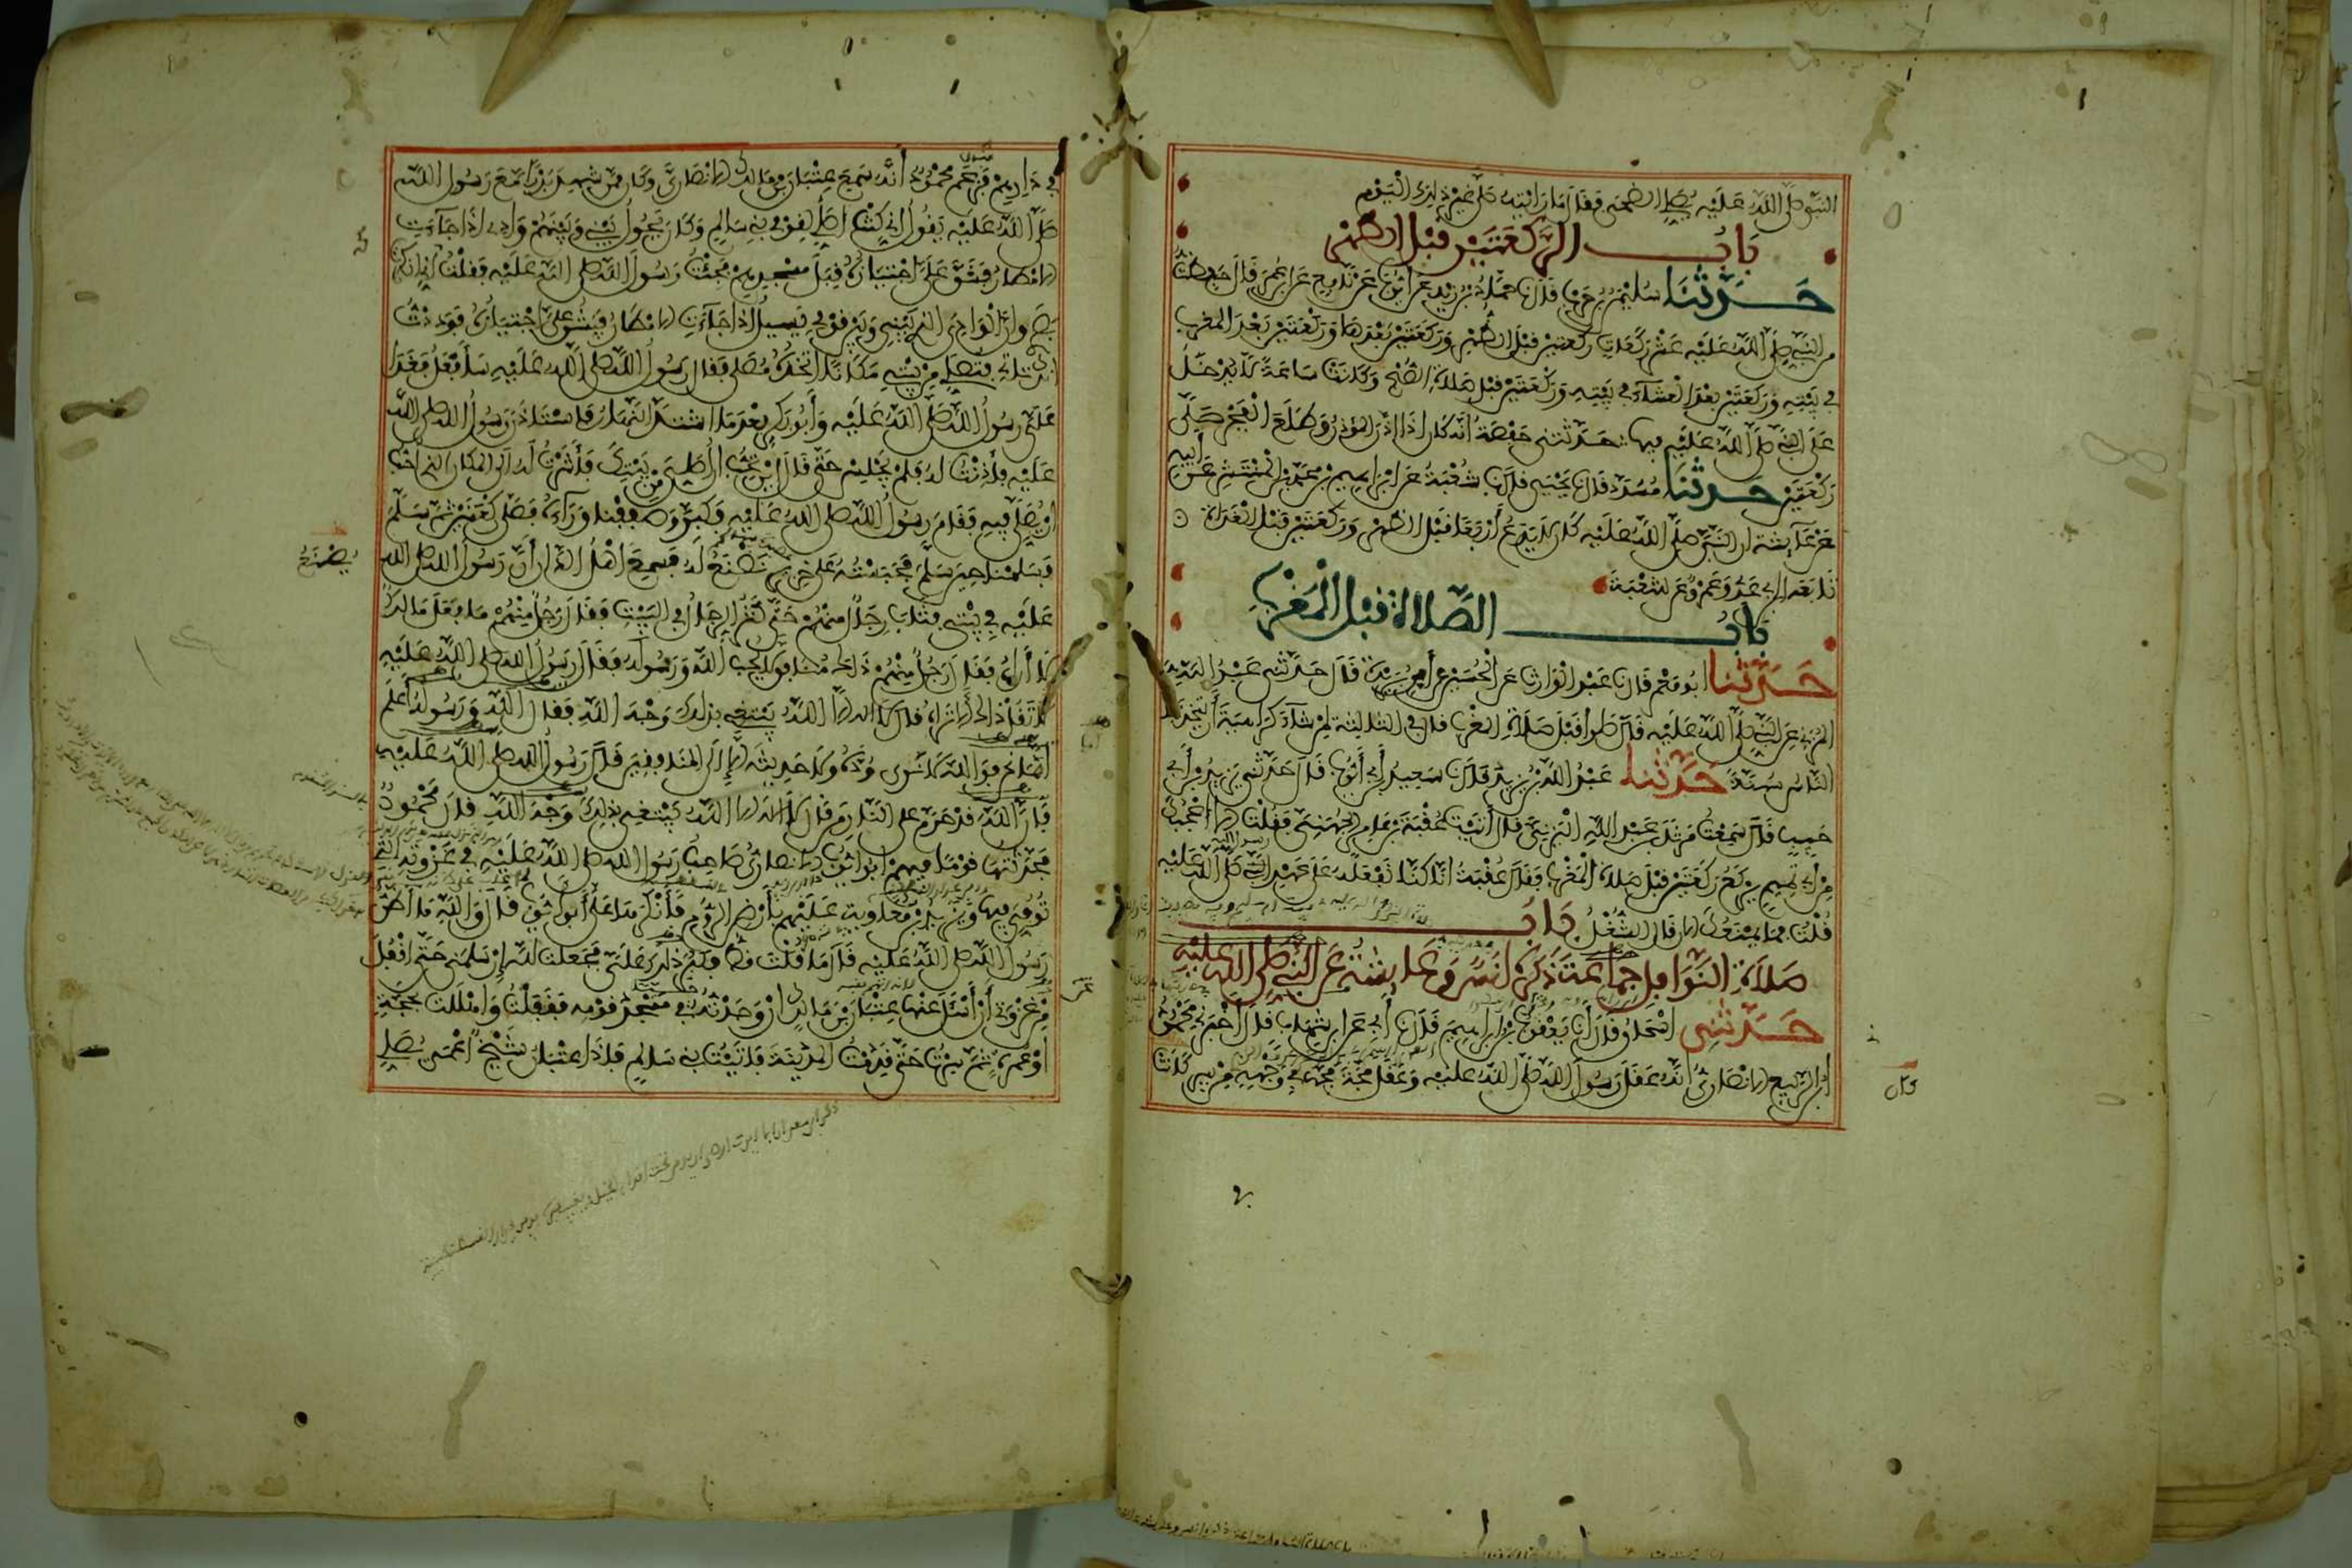 النبي صلى الله عليه يصلي الضحى فقال ما رأيته صلى غير ذلك اليوم
باب الركعتين قبل الظهر
حدثنا سليمن بن حرب قال نا حماد بن زيد عن أيوب عن نافع عن ابن عمر قال حفظت
من النبي صلى الله عليه عشر ركعات ركعتين قبل الظهر وركعتين بعدها وركعتين بعد المغرب
في بيته وركعتين بعد العشاء في بيته وركعتين قبل صلاة الصبح وكانت ساعة لا يدخل
على النبي صلى الله عليه فيها حدثتني حفصة أنه كان إذا أذن المؤذن وطلع الفجر صلى
ركعتين حدثنا مسدد قال نا يحيى قال نا شعبة عن إبراهيم بن محمد بن المنتشر عن أبيه
عن عائشة أن النبي صلى الله عليه كان لا يدع أربعا قبل الظهر وركعتين قبل الغداة
تابعه ابن أبي عدي وعمرو عن شعبة
باب الصلاة قبل المغرب
حدثنا أبو معمر قال نا عبد الوارث عن الحسين عن ابن بريدة قال حدثني عبد الله
المزني عن النبي صلى الله عليه قال صلوا قبل صلاة المغرب قال في الثالثة لمن شاء كراهية أن يتخذها
الناس سنة حدثنا عبد الله بن يزيد قال نا سعيد بن أبي أيوب قال حدثني يزيد بن أبي
حبيب قال سمعت مرثد بن عبد الله اليزني قال أتيت عقبة بن عامر الجهني فقلت ألا أعجبك
من أبي تميم يركع ركعتين قبل صلاة المغرب فقال عقبة إنا كنا نفعله على عهد النبي صلى الله عليه
قلت فما يمنعك الآن قال الشغل باب
صلاة النوافل جماعة ذكره أنس وعائشة عن النبي صلى الله عليه
حدثني إسحاق قال نا يعقوب بن إبراهيم قال نا أبي عن ابن شهاب قال أخبرني محمود
ابن الربيع الأنصاري أنه عقل رسول الله صلى الله عليه وعقل مجة مجها في وجهه من بير كانت
في دارهم فزعم محمود أنه سمع عتبان بن مالك الأنصاري وكان ممن شهد بدرا مع رسول الله
صلى الله عليه يقول إني كنت أصلي لقومي بني سالم وكان يحول بيني وبينهم واد إذا جاءت
الأمطار فيشق علي اجتيازه قبل مسجدهم فجئت رسول الله صلى الله عليه فقلت إني أنكرت
بصري وإن الوادي الذي بيني وبين قومي يسيل إذا جاءت الأمطار فيشق علي اجتيازه فوددت
أنك تأتي فتصلي من بيتي مكانا أتخذه مصلى فقال رسول الله صلى الله عليه سأفعل فغدا
علي رسول الله صلى الله عليه وأبو بكر بعد ما اشتد النهار فاستأذن رسول الله صلى الله
عليه فأذنت له فلم يجلس حتى قال أين تحب أن أصلي من بيتك فأشرت له إلى المكان الذي أحب
أن يصلي فيه فقام رسول الله صلى الله عليه فكبر وصففنا وراءه فصلى ركعتين ثم سلم
فسلمنا حين سلم فحبسته على خزير تصنع له فسمع أهل الدار أن رسول الله صلى الله
يصنع
عليه في بيتي فثاب رجال منهم حتى كثر الرجال في البيت فقال رجل منهم ما فعل مالك
لا أراه فقال رجل منهم ذاك منافق لا يحب الله ورسوله فقال رسول الله صلى الله عليه
لا تقل ذاك ألا تراه قال لا إله إلا الله يبتغي بذلك وجه الله فقال الله ورسوله أعلم
أما نحن فوالله لا نرى وده ولا حديثه إلا إلى المنافقين قال رسول الله صلى الله عليه
فإن الله قد حرم على النار من قال لا إله إلا الله يبتغي بذلك وجه الله قال محمود
فحدثتها قوما فيهم أبو أيوب الأنصاري صاحب رسول الله صلى الله عليه في غزوته التي
توفي فيها ويزيد بن معاوية عليهم بأرض الروم فأنكرها علي أبو أيوب قال والله ما أظن
رسول الله صلى الله عليه قال ما قلت قط فكبر ذلك علي فجعلت لله إن سلمني حتى أقفل
من غزوتي أن أسأل عنها عتبان بن مالك إن وجدته في مسجد قومه فقفلت وأهللت بحجة
أو عمرة ثم سرت حتى قدمت المدينة فأتيت بني سالم فإذا عتبان شيخ أعمى يصلي